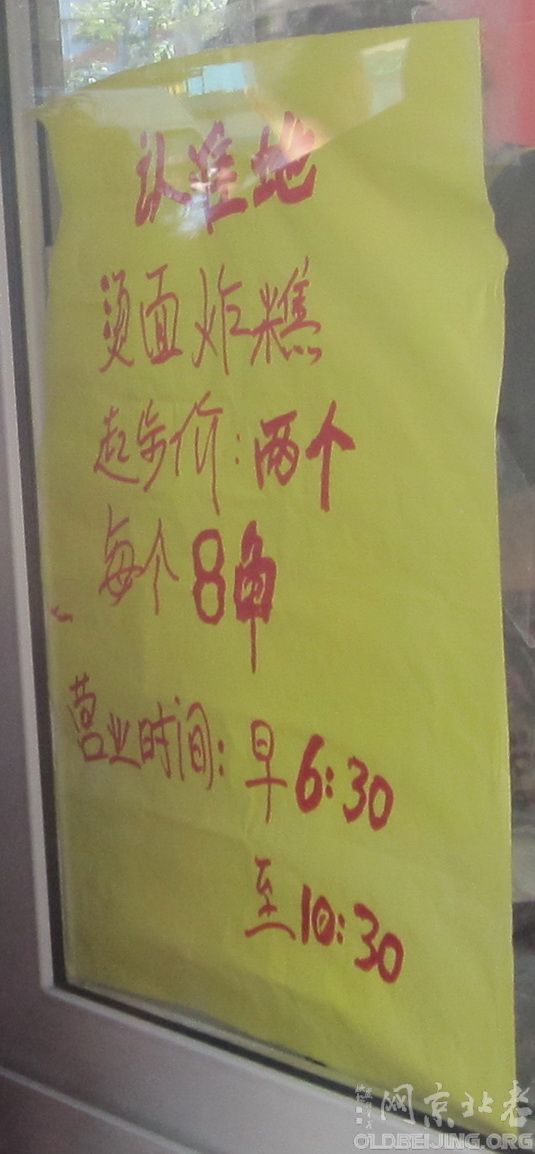 认准地
烫面炸糕
起步价:两个
每个8角
营业时间:早6:30
至10:30
网京北老
OLDBEIJING.ORG